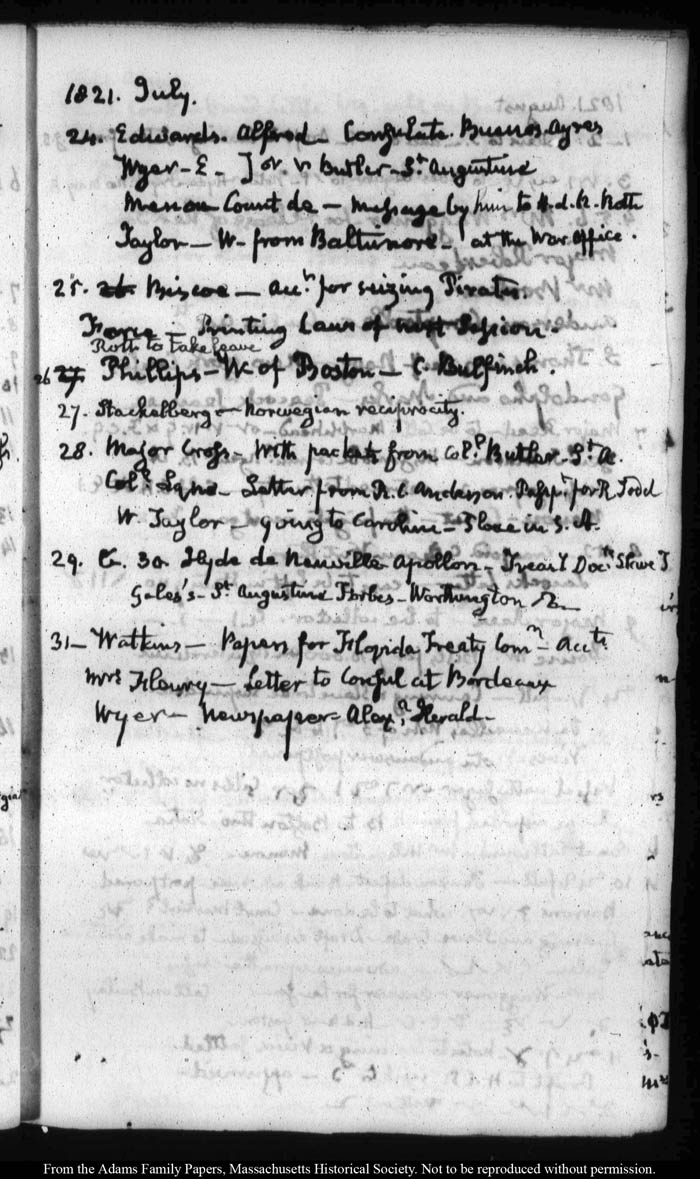 1821. July.
24. Edwards. Alfred — Consulate. Buenos Ayres
Wyer — E — ] Butler — St. Augustine
Menou Count de — message by him to H. d. N. Roth
Taylor — W — from Baltimore — at the War Office.
25. Biscoe — Acct. for seizing Pirates.
Force — Printing Laws of next Session.
Roth to take leave
26 27. Phillips — W. of Boston — C. Bulfinch.
27. Stackelberg — Norwegian reciprocity.
28. Major Cross — With packets from Coll. Butler. St. A.
Letter from R. C. Anderson. Passpt. for R Todd
W. Taylor — going to Carolina — Place in S. A.
29. 30. Hyde de Neuville Apollon — Treasy. Doct.
Gales's — St. Augustine Forbes — Worthington
31 — Watkins — Papers for Florida Treaty Commn. — Acct.
Mrs Fleury — Letter to Consul at Bordeaux
Wyer — Newspaper — Alexa. Herald —
From the Adams Family Papers, Massachusetts Historical Society. Not to be reproduced without permission.